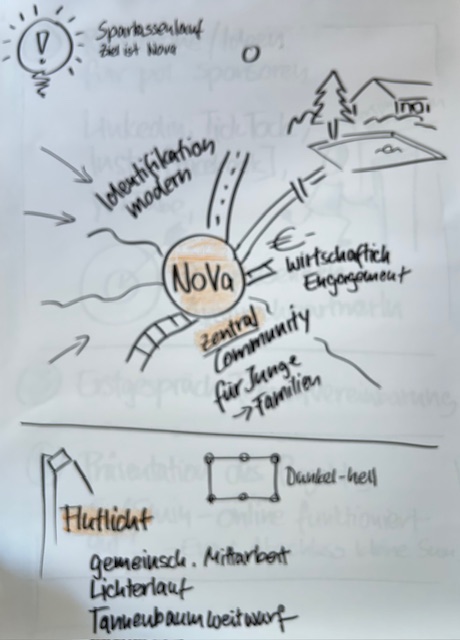 Sparkassenlauf
Ziel ist Nova
Identifikation
modern
€-
Wirtschaftlich
Engagement
NoVa
Zentral
Community
für Junge
→ Familien
Dunkel-hell
Flutlicht
gemeinsch. Mitarbeit
Lichterlauf
Tannenbaumweitwurf